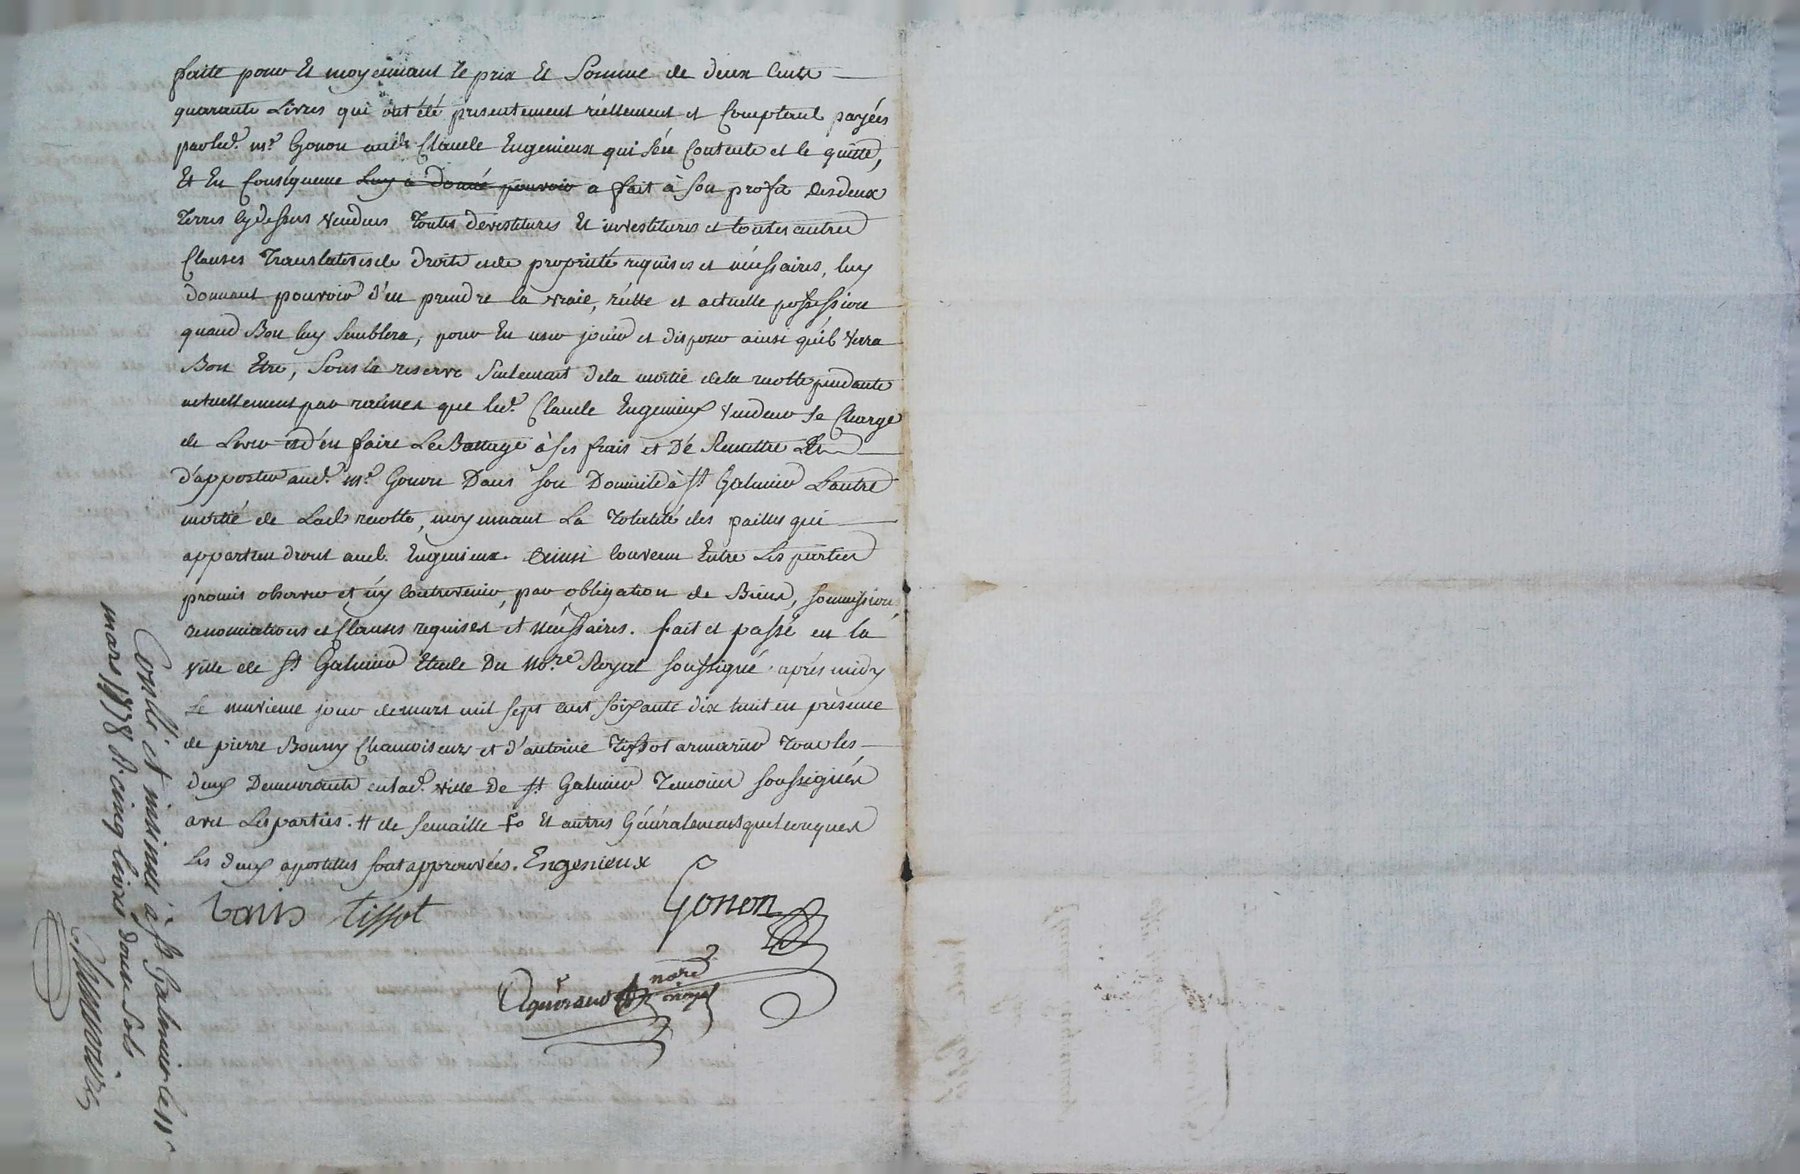 faite pour Et moyennant le prix Et Somme de deux Cents
quarante Livres qui ont été presentement réellement et Comptant payées
par led. mr. Gonon aud. Claude Engenieux qui s'en Contente et le quitte,
Et En Conséquence Luy a donné pouvoir a fait à son profit des deux
Terres cy dessus vendues toutes devestitures Et investitures et toutes autres
Clauses Translatives de droits et de proprieté requises et nécessaires, luy
donnant pouvoir d'en prendre la vraie, réelle et actuelle possession
quand Bon luy semblera, pour En user jouir et disposer ainsi qu'il verra
Bon Etre, sous la reserve seulement de la moitié de la recolte pendante
actuellement par racines que led. Claude Engenieux vendeur se Charge
de Lever et d'en faire Le Battage à ses frais et De Remettre
d'apporter aud. mr. Gonon Dans son Domicile à st Galmier L'autre
moitié de Lad. recolte, moyennant La Totalité des pailles qui
appartiendront aud. Engenieux. Ainsi Convenu Entre Les parties
promis observer et n'y Contrevenir, par obligation de Biens, soumissions,
renonciations et Clauses requises et nécessaires. fait et passé en la
ville de st Galmier Etude Du nore. Royal soussigné après midy
Le neuvieme jour de mars mil sept cent soixante dix huit en présence
de pierre Bonny Chamoiseur et d'antoine Tissot armurier Tous les
deux Demeurants en lad. ville de st Galmier Temoins soussignés
avec Les parties. # de semaille fo Et autres Généralement quelconques
Les deux apostilles sont approuvées. Engenieux
tissot Gonon
nore royal
Conllé et insinué à st Galmier le 11
mars 1778 R. cinq livres douze sols